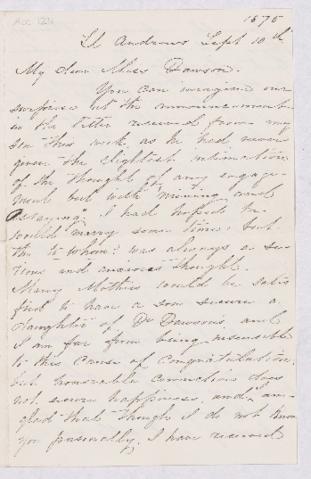 1875
St Andrews Sept 10th
My dear Miss Dawson.
You can imagine our
surprise at the announcement
in the letter received from my
son this week, as he had never
given the slightest intimation
of the thought of any engage-
ment but with mining and
assaying. I had hoped he
would marry some time; but
the "to whom?" was always a se-
rious and anxious thought.
Many Mothers would be satis
fied to have a son secure a
daughter of Dr Dawson's and
I am far from being insensible
to this cause of congratulation;
but honorable connections does
not secure happiness, and I am
glad that though I do not know
you personally, I have received